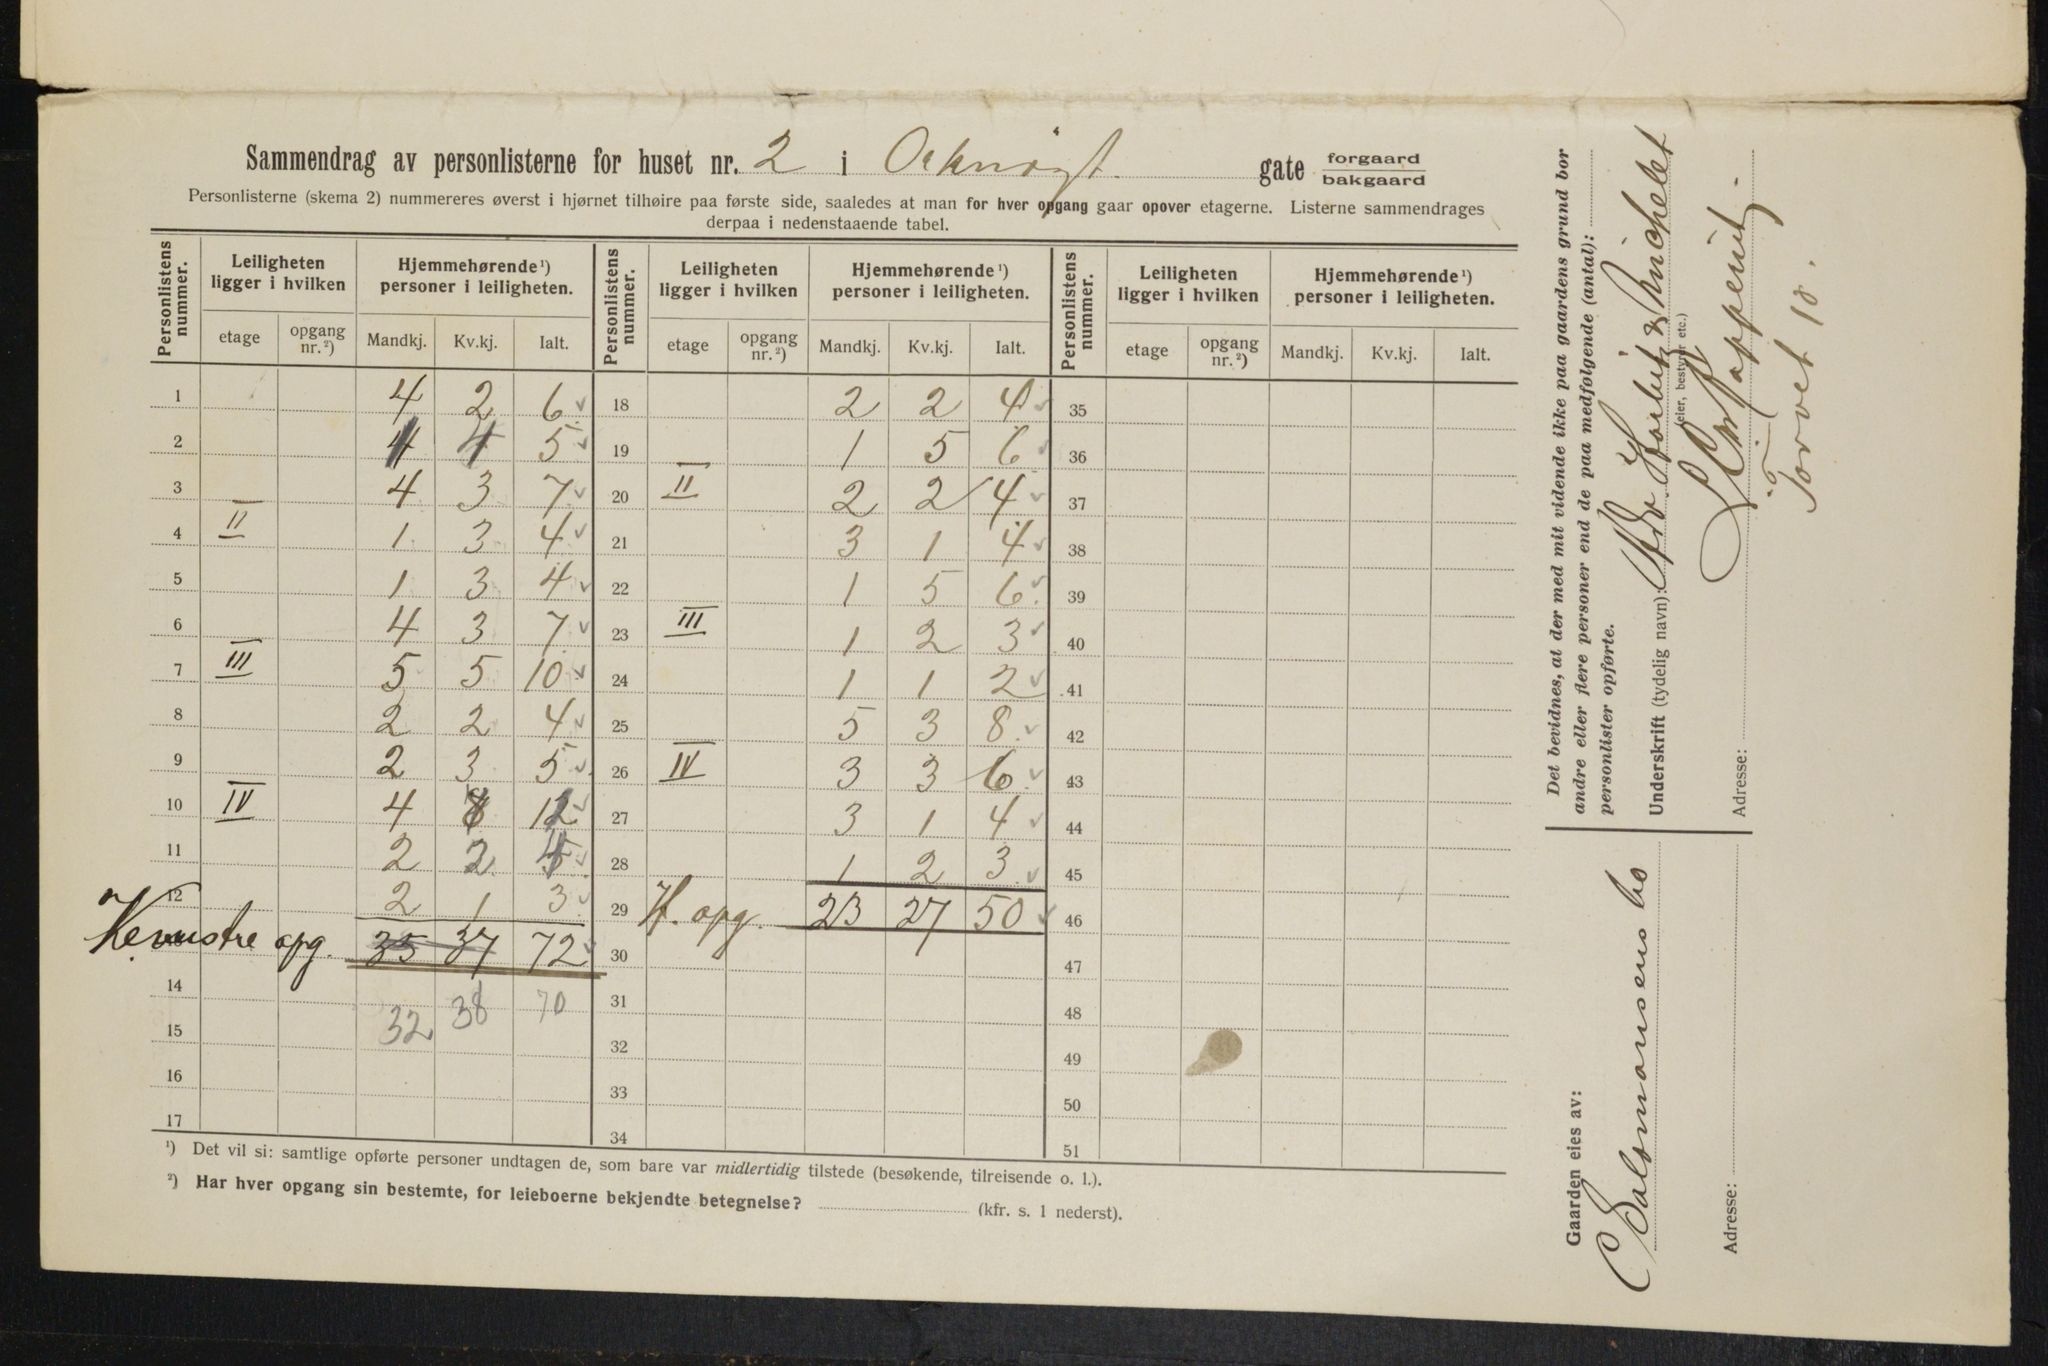 Sammendrag av personlisterne for huset nr. 2 i Orknøgt. gate forgaard bakgaard
Personlisterne (skema 2) nummereres øverst i hjørnet tilhøire paa første side, saaledes at man for hver opgang gaar opover etagerne. Listerne sammendrages
derpaa i nedenstaaende tabel.
Personlistens nummer. Leiligheten ligger i hvilken Hjemmehørende ¹) personer i leiligheten. Personlistens nummer. Leiligheten ligger i hvilken Hjemmehørende ¹) personer i leiligheten. Personlistens nummer. Leiligheten ligger i hvilken Hjemmehørende ¹) personer i leiligheten.
etage opgang nr. ²) Mandkj. Kv.kj. Ialt. etage opgang nr. ²) Mandkj. Kv.kj. Ialt. etage opgang nr. ²) Mandkj. Kv.kj. Ialt.
1 4 2 6 18 2 2 4 35
2 4 5 19 1 5 6 36
3 4 3 7 20 II 2 2 4 37
4 II 1 3 4 21 3 1 4 38
5 1 3 4 22 1 5 6 39
6 4 3 7 23 III 1 2 3 40
7 III 5 5 10 24 1 1 2 41
8 2 2 4 25 5 3 8 42
9 2 3 5 26 IV 3 3 6 43
10 IV 4 12 27 3 1 4 44
11 2 2 28 1 2 3 45
12 2 1 3 29 H. opg. 23 27 50 46
Venstre opg. 35 37 72 30 47
14 32 38 70 31 48
15 32 49
16 33 50
17 34 51
¹) Det vil si: samtlige opførte personer undtagen de, som bare var midlertidig tilstede (besøkende, tilreisende o. l.).
²) Har hver opgang sin bestemte, for leieboerne bekjendte betegnelse? (kfr. s. 1 nederst).
Det bevidnes, at der med mit vidende ikke paa gaardens grund bor
andre eller flere personer end de paa medfølgende (antal):
personlister opførte.
Underskrift (tydelig navn): & Michelet
(eier, bestyrer etc.)
Adresse:
Torvet 10.
Gaarden eies av:
Salomonsens bo
Adresse: